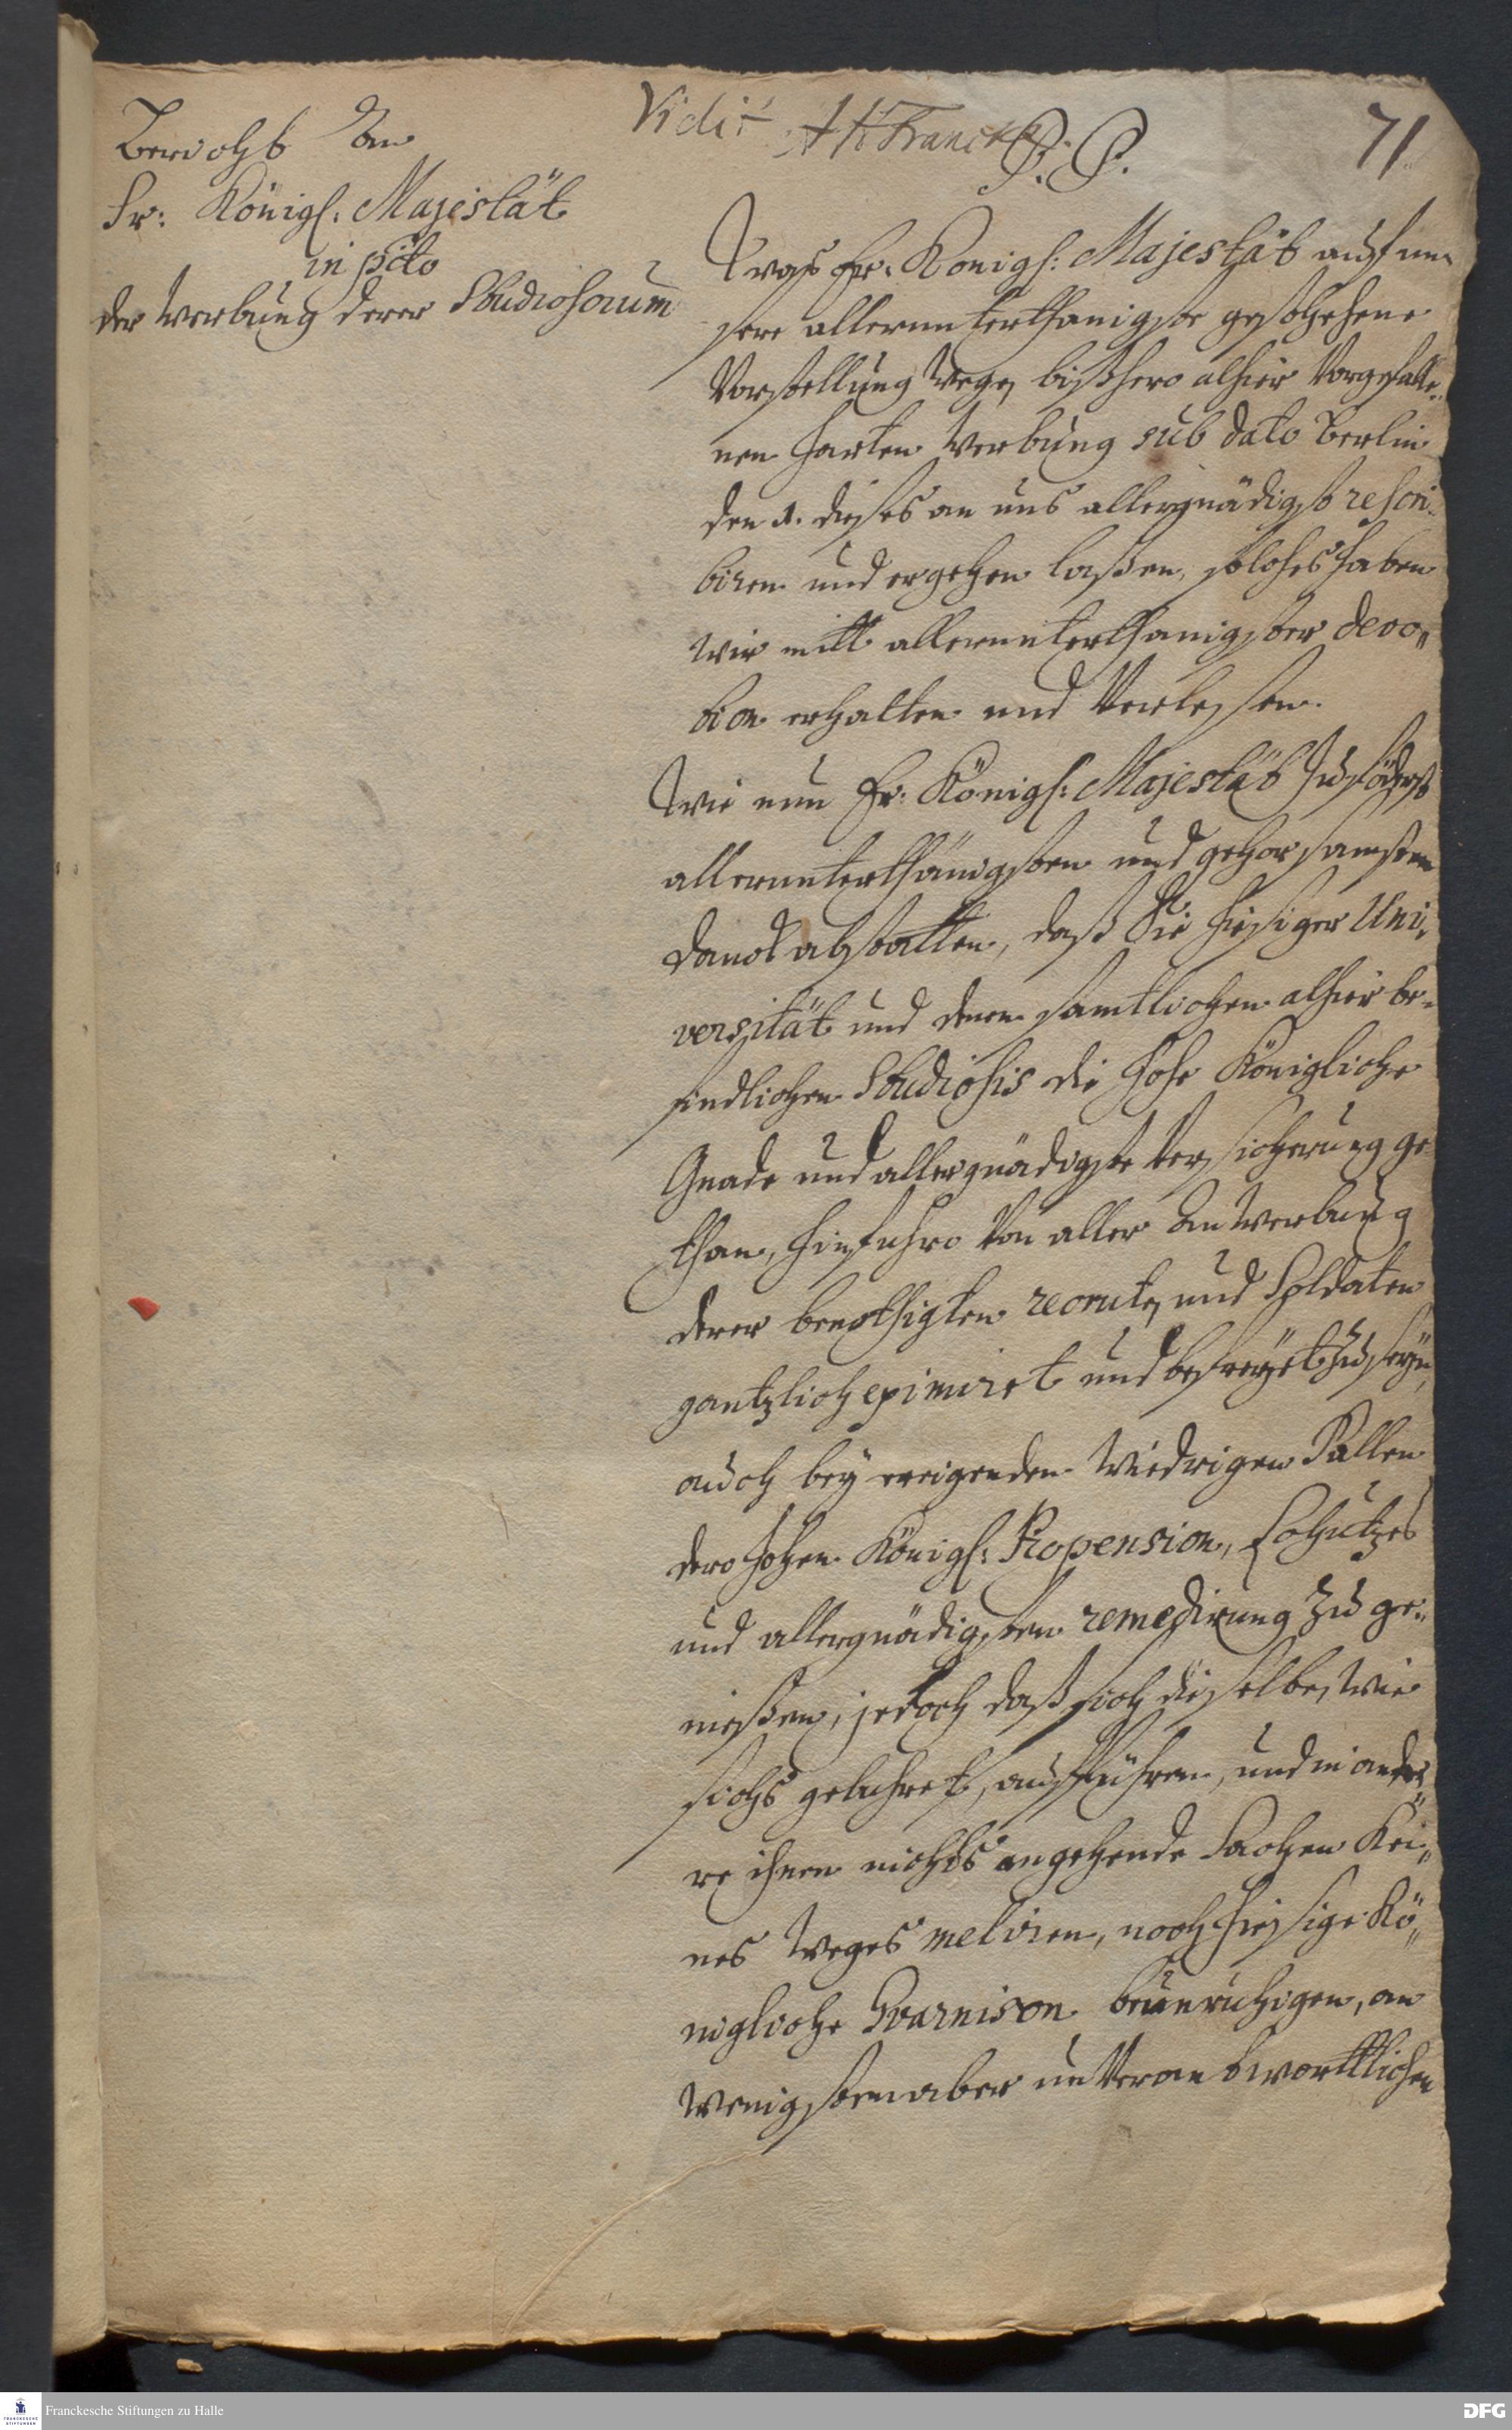 Bericht an
Sr: Königl. Majestät
in pcto
der Werbung derer Studiosorum
Vidit AHFrancke
P. P.
71
Was Ew. Konigl: Majestät auf un-
sere allerunterthanigste geschehene
Vorstellung wegen bißhero alhier Vorgefalle-
nen harten Werbung sub dato Berlin
den 1. dieses an uns allergnädigst rescri-
biren und ergehen laßen, solches haben
wir mitt allerunterthanigster devo-
tion erhalten und Verlesen.
Wie nun Ew. Königl: Majestät zuförderst
allerunterthänigsten und gehorsamsten
Danck abstatten, daß Sie hiesiger Uni-
versität und denen samtlichen alhier be-
findlichen Studiosis die hohe Königliche
Gnade und allergnädigste Versicherung ge
than, hinfuhro Von aller Anwerbung
derer benothigten recruten und Soldaten
gantzlich eximiret und befreyet zu seyn,
auch bey ereigenden wiedrigen Fällen
dero hohen Königl: Propension, Schutzes
und allergnädigsten remedirung zu ge-
nießen, jedoch daß sich dieselben, wie
sichs gebuhret, aufführen, und in ande-
re ihnen nichts angehende Sachen Kei-
nes weges meliren, noch hiesige Kö-
nigliche Gvarnison beunruhigen, am
wenigsten aber unverantwortlichen
Franckesche Stiftungen zu Halle
DFG